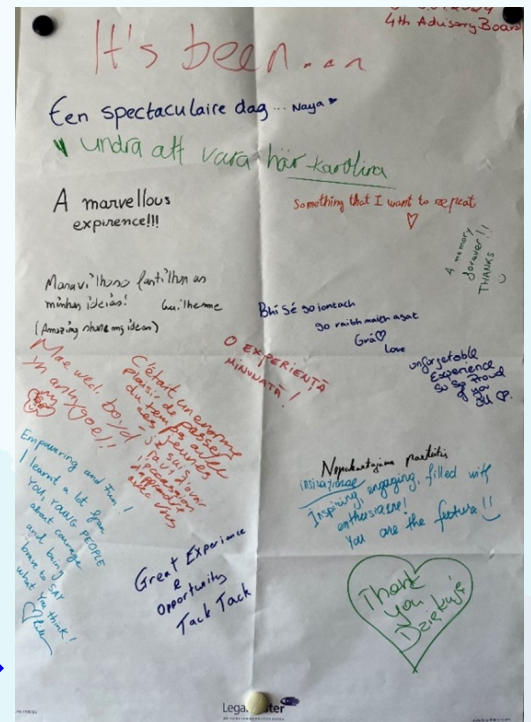 4th Advisory Board
It's been...
Een spectaculaire dag... Naya
undra att vara här Karolina
A marvellous
expirence!!!
Something that I want to repeat
A memory
forever!!
THANKS
minhas ideias! Guilherme
(Amazing share my ideas)
Bhí Sé go iontach
go raibh maith agat
Grá
Love
O EXPERIENȚĂ
MINUNATĂ!
unforgetable
Experience
So So Proud
of you
all
Mae wedi bod yn
C'était un enorme
plaisir de passer
du temps avec
ces jeunes
je suis
avec vous
Empowering and Fun!
I learnt a lot from
YOU, YOUNG PEOPLE
about courage
and being
brave to SAY
what you think!
Great Experience
&
Opportunity
Tack Tack
Inspiring, engaging, filled with
enthusiasme!
You are the future!!
Thank
you
Dziękuję